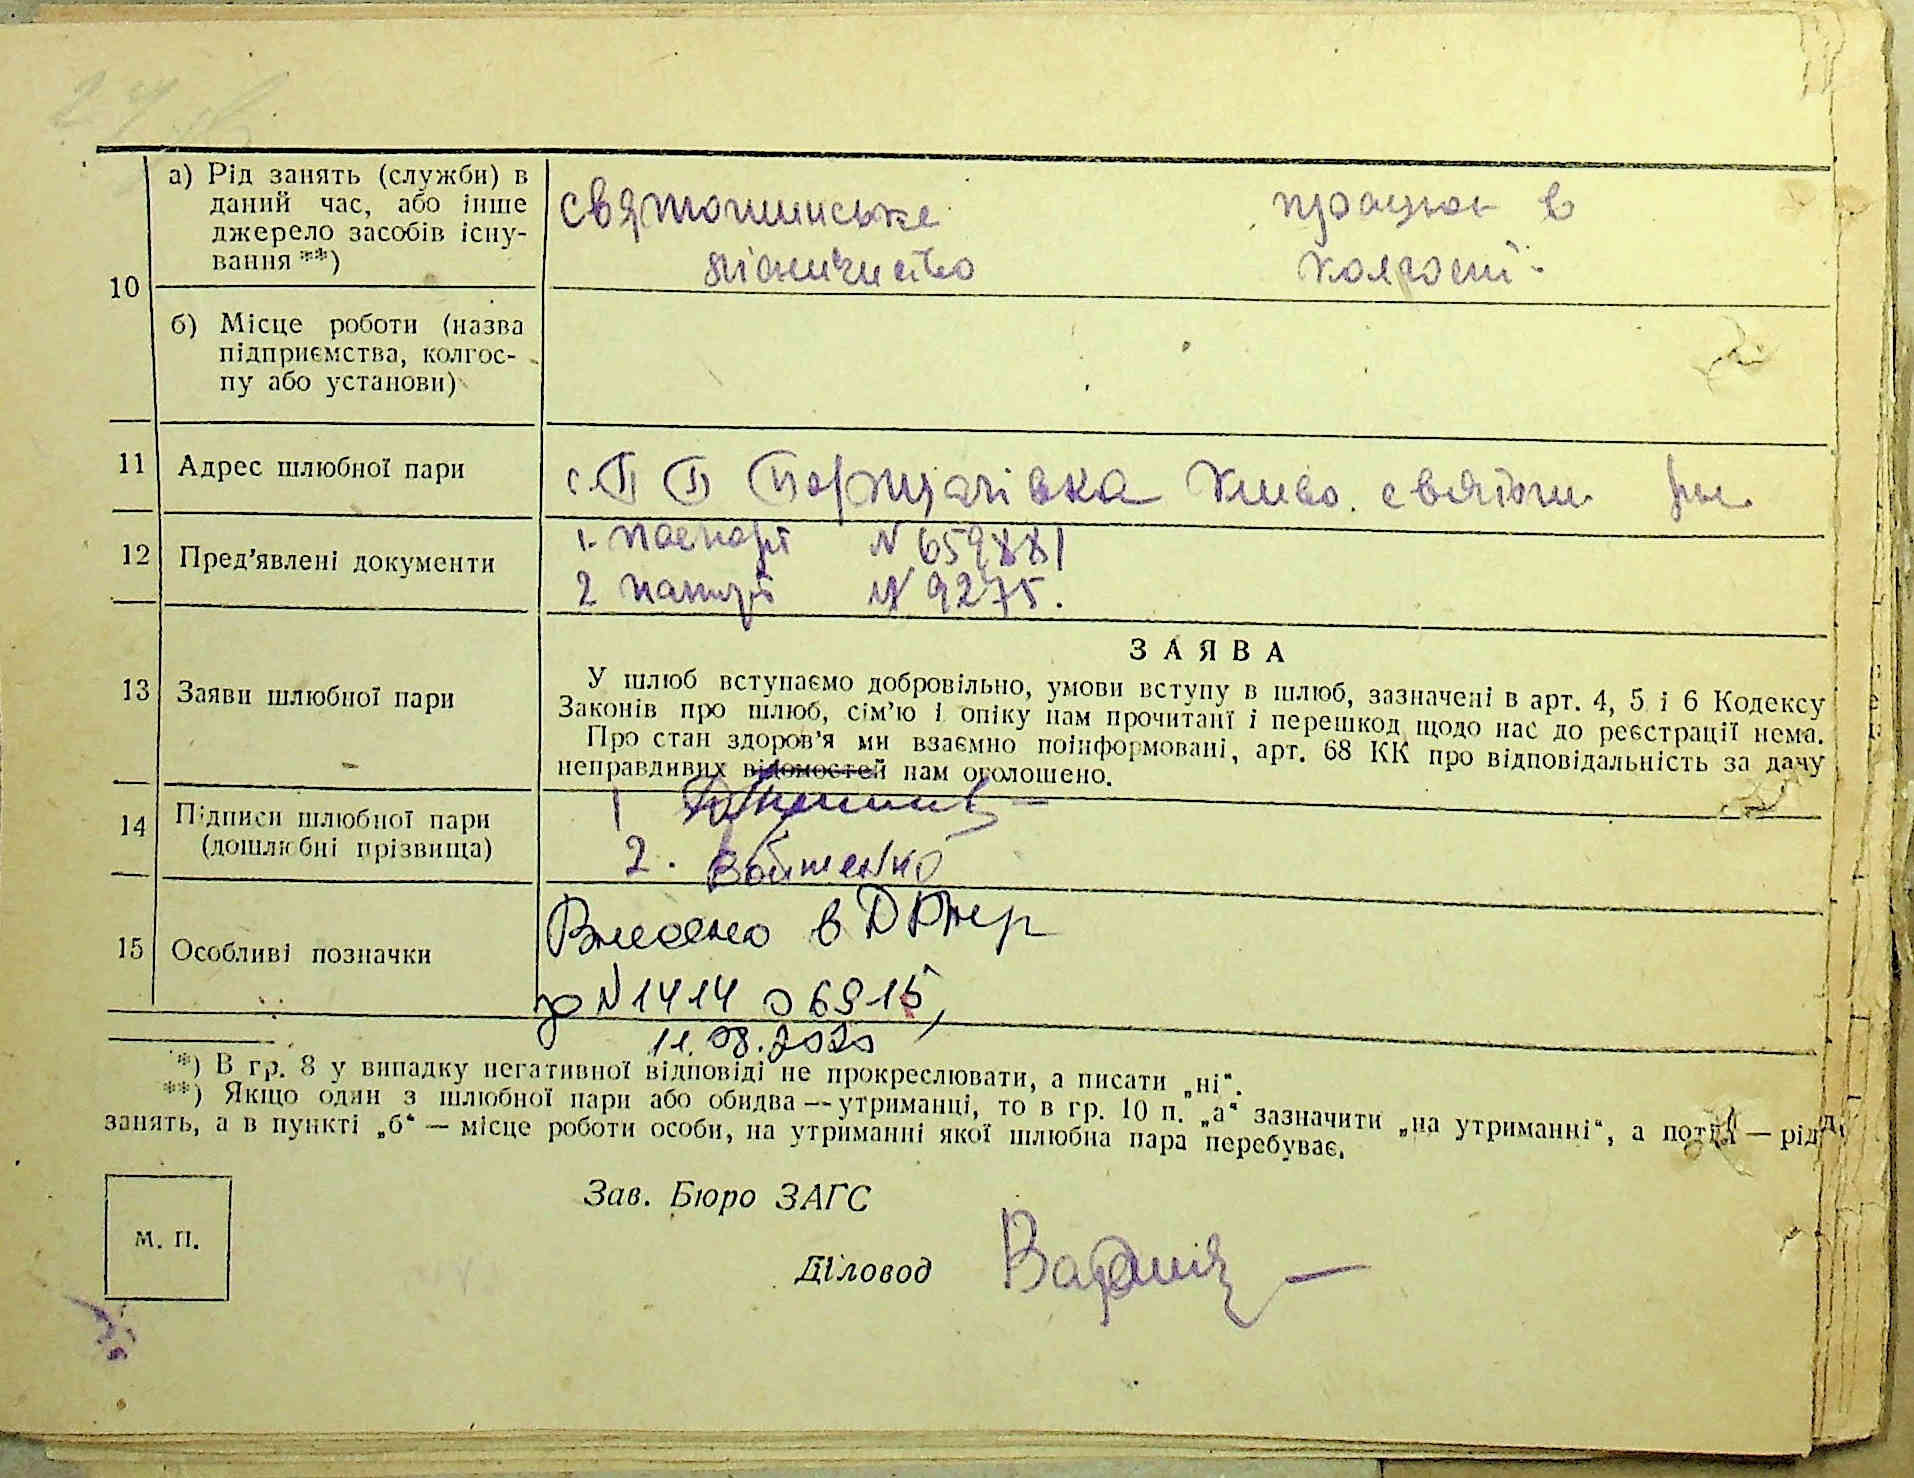 а) Рід занять (служби) в
даний час, або інше
джерело засобів існу-
вання **)
святошинське
лісничиство
працює в
колгоспі
10
б) Місце роботи (назва
підприємства, колгос-
пу або установи)
11 Адрес шлюбної пари
с. П П Борщагівка Києво. святош
12 Пред'явлені документи
1. паспорт N 659881
2 паспорт N 9275.
13 Заяви шлюбної пари
ЗАЯВА
У шлюб вступаємо добровільно, умови вступу в шлюб, зазначені в арт. 4, 5 і 6 Кодексу
Законів про шлюб, сім'ю і опіку нам прочитані і перешкод щодо нас до реєстрації нема.
Про стан здоров'я ми взаємно поінформовані, арт. 68 КК про відповідальність за дачу
неправдивих відомостей нам оголошено.
14 Підписи шлюбної пари
(дошлюбні прізвища)
1
2. Войтенко
15 Особливі позначки
Внесено в
за N 1414 06915
11.08.2020
*) В гр. 8 у випадку негативної відповіді не прокреслювати, а писати „ні“.
**) Якщо один з шлюбної пари або обидва — утриманці, то в гр. 10 п. „а“ зазначити „на утриманні“, а потім — рід
занять, а в пункті „б“ — місце роботи особи, на утриманні якої шлюбна пара перебуває.
Зав. Бюро ЗАГС
М. П.
Діловод